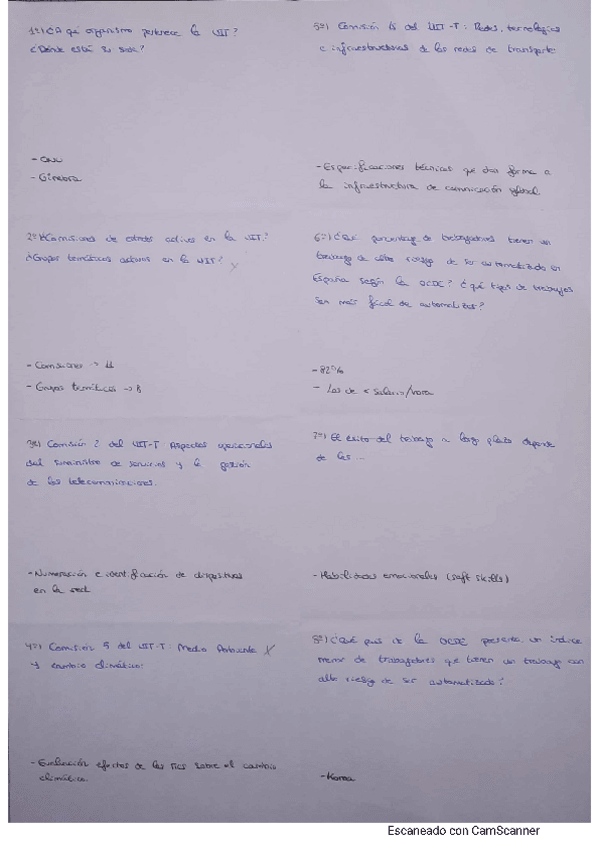 1º) ¿A qué organismo pertenece la UIT?
¿Dónde está su sede?
- ONU
- Ginebra
2º) ¿Comisiones de estudio activas en la UIT?
¿Grupos temáticos activos en la UIT? x
- Comisiones → 11
- Grupos temáticos → 8
3º) Comisión 2 del UIT-T: Aspectos operacionales
del suministro de servicios y la gestión
de las telecomunicaciones.
- Numeración e identificación de dispositivos
en la red
4º) Comisión 5 del UIT-T: Medio Ambiente X
y cambio climático:
- Evaluación efectos de las TICs sobre el cambio
climático.
5º) Comisión 15 del UIT-T: Redes, tecnologías
e infraestructuras de las redes de transporte
- Especificaciones técnicas que dan forma a
la infraestructura de comunicación global
6º) ¿Qué porcentaje de trabajadores tienen un
trabajo de alto riesgo de ser automatizado en
España según la OCDE? ¿qué tipos de trabajos
son más fácil de automatizar?
- Los de < salario/hora
7º) El éxito del trabajo a largo plazo depende
de las ...
- Habilidades emocionales (soft skills)
8º) ¿Qué país de la OCDE presenta un índice
menor de trabajadores que tienen un trabajo con
alto riesgo de ser automatizado?
- Korea
Escaneado con CamScanner